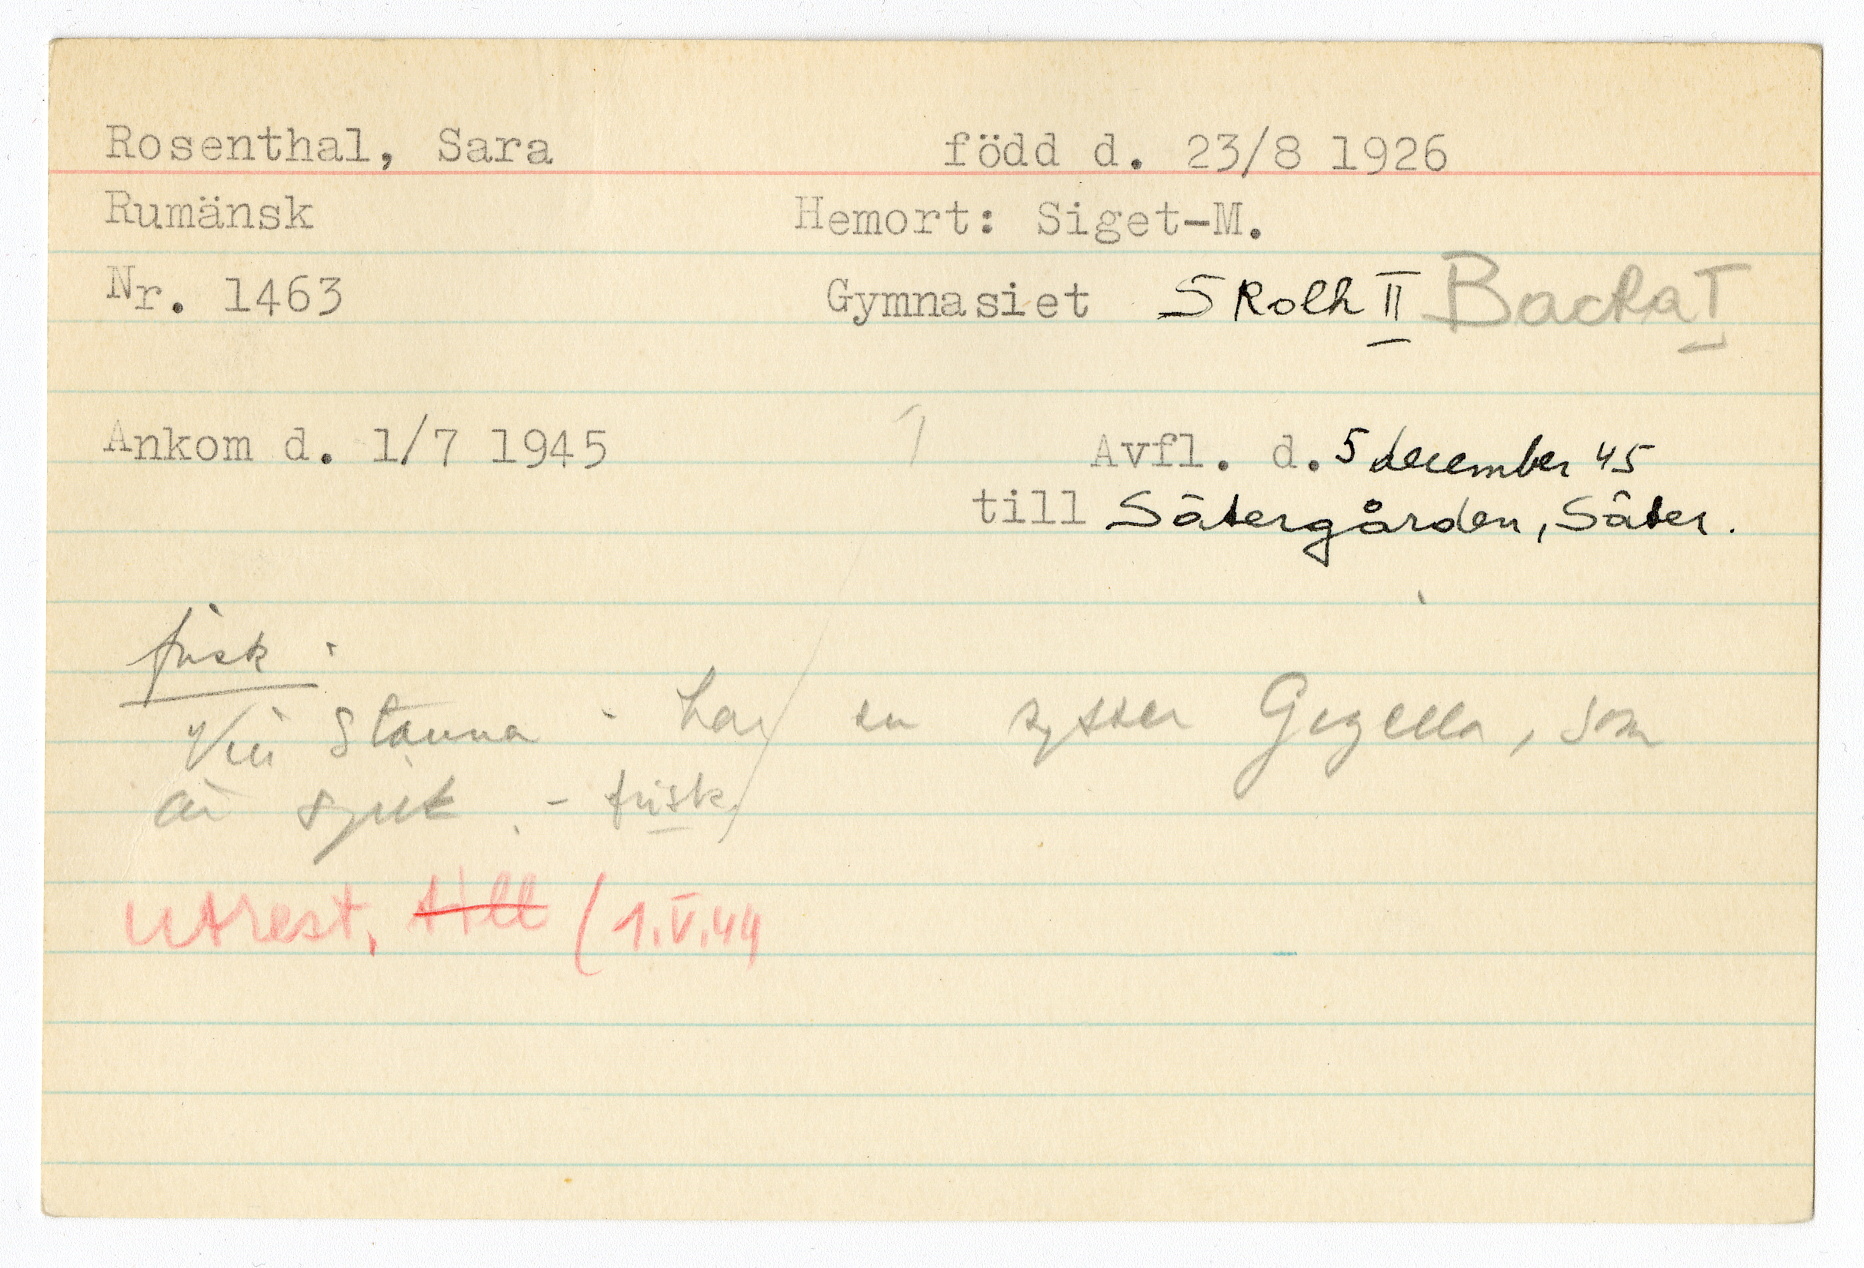 Rosenthal, Sara född d. 23/8 1926
Rumänsk Hemort: Siget-M.
Nr. 1463 Gymnasiet Skolh II Backa I
Ankom d. 1/7 1945 Avfl. d. 5 december 45
till Sätergården, Säter.
frisk.
Vill stanna - har en syster Gizella, som
är sjuk. - frisk.
utrest, till (1.V.44